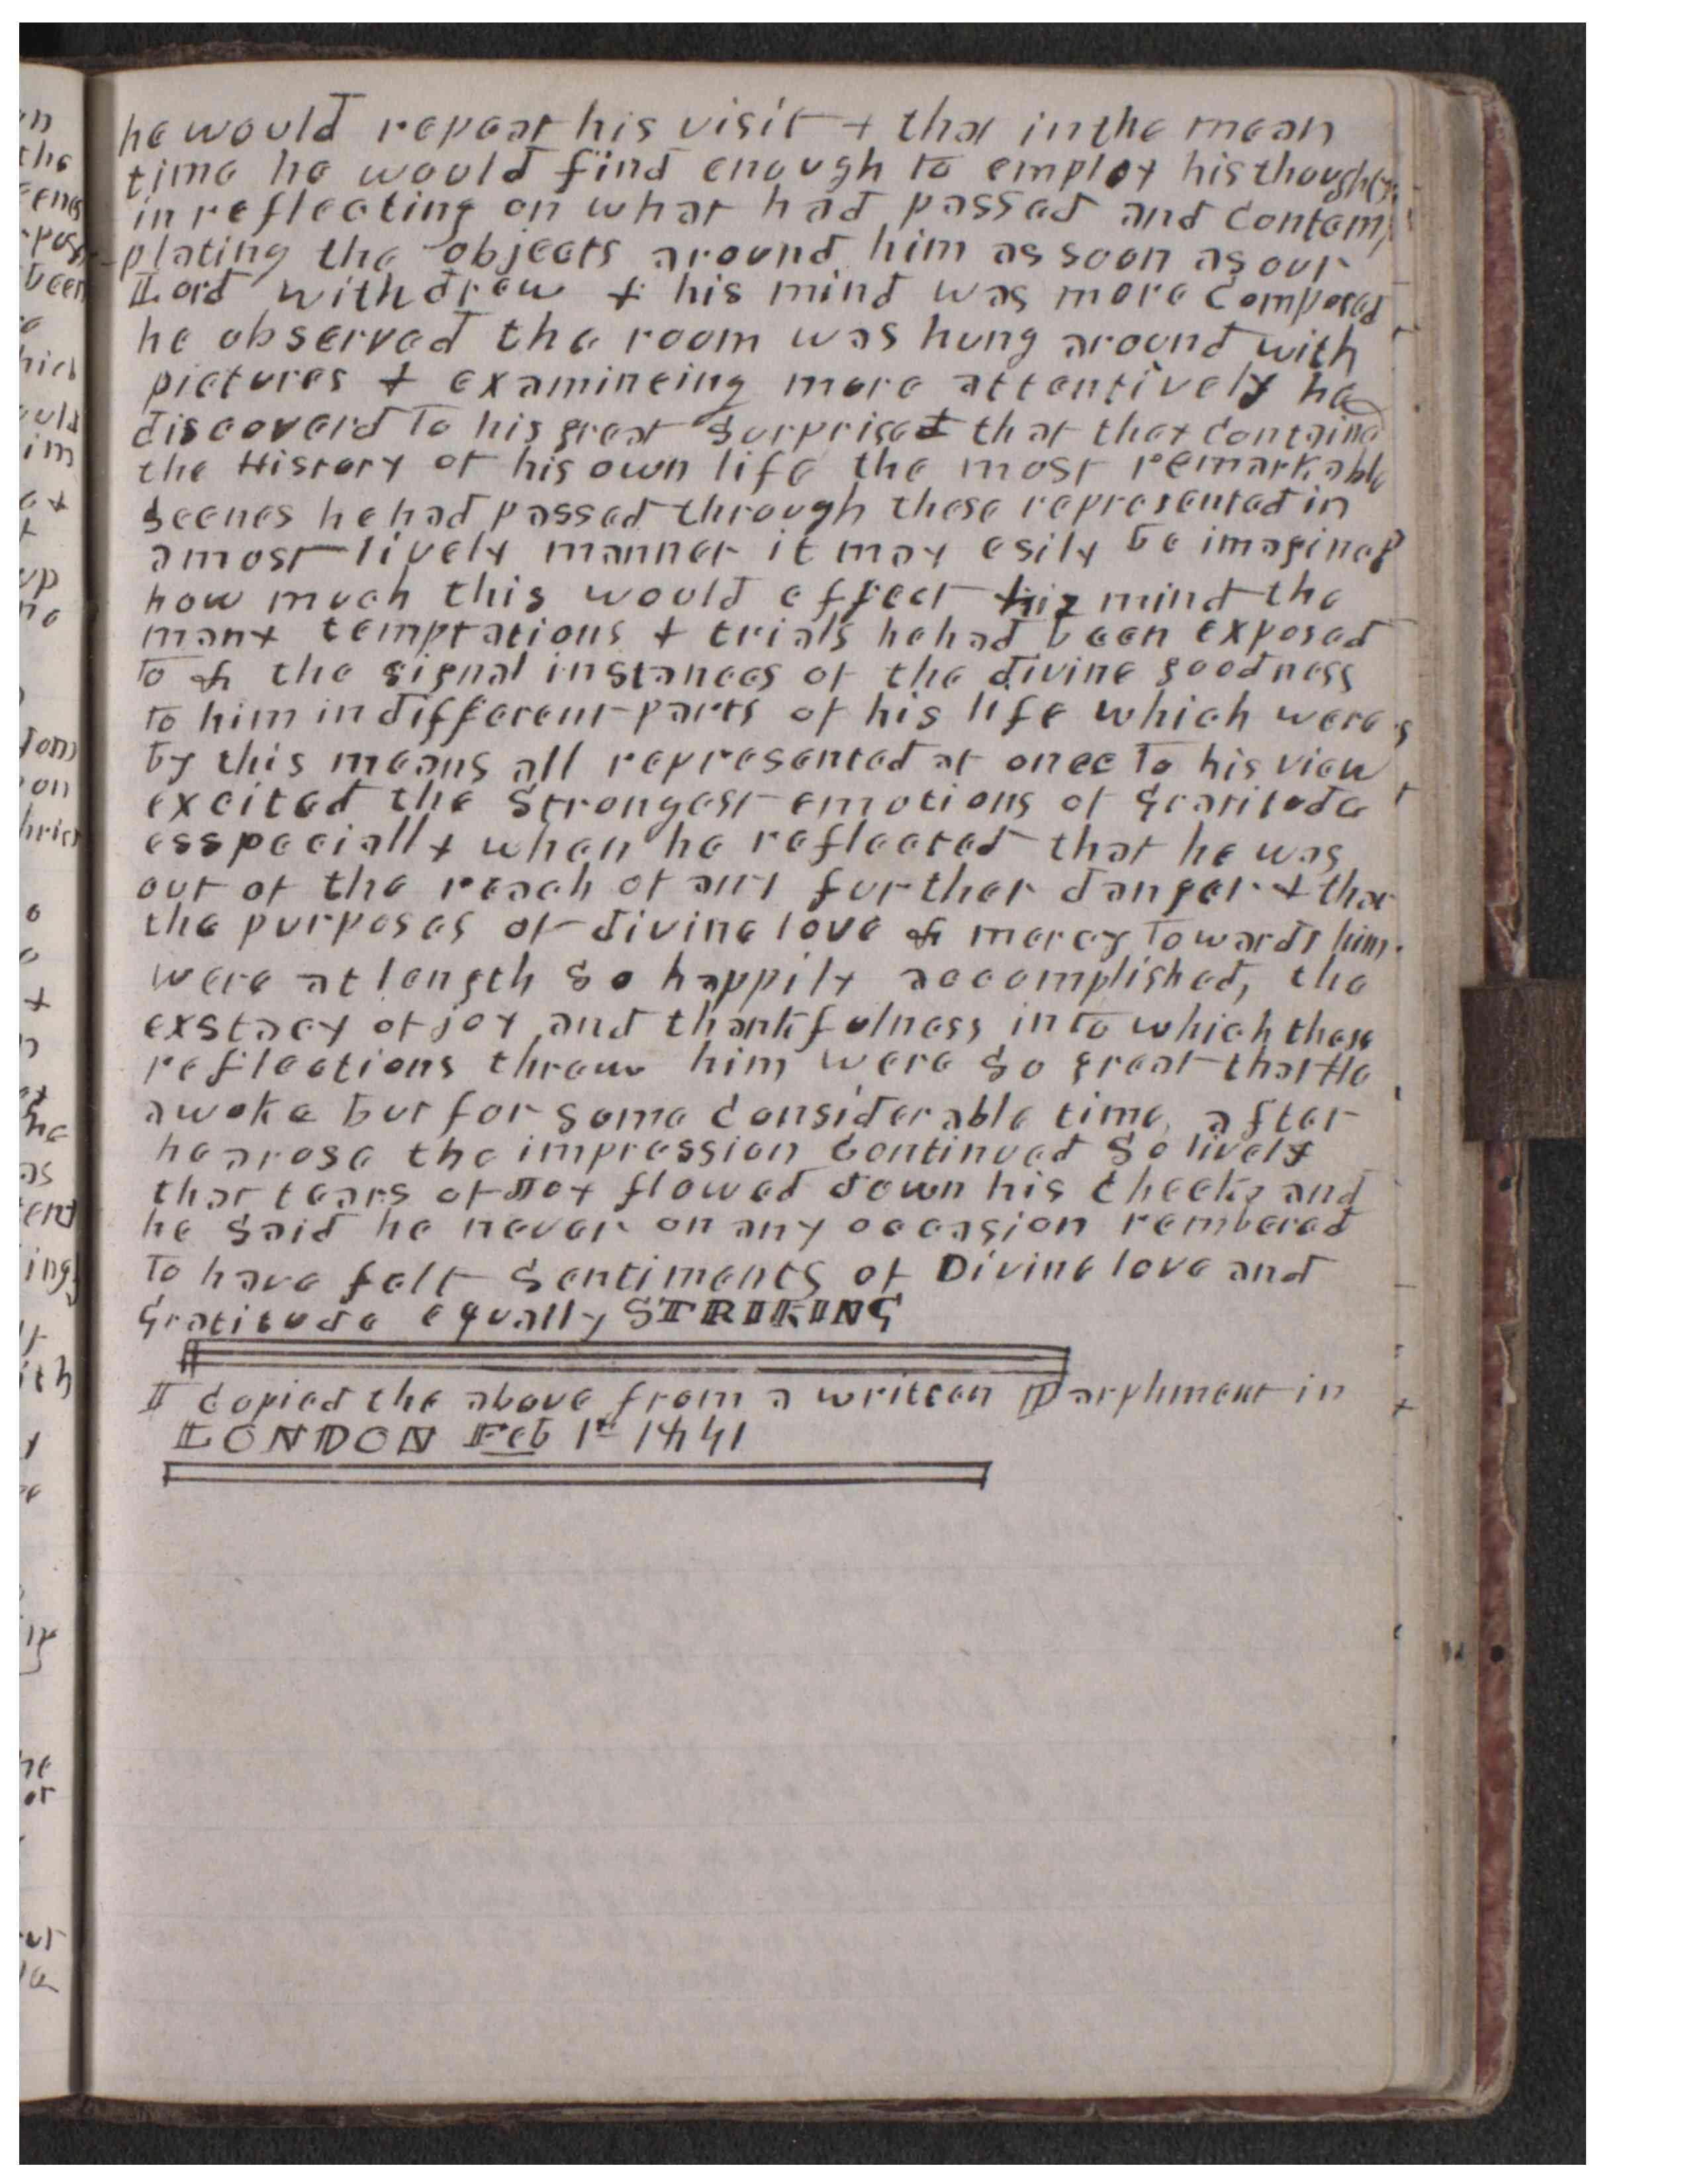 he would repeat his visit + that in the mean
time he would find enough to employ his thoughts
in reflecting on what had passed and Contem
-plating the objects around him as soon as our
Lord withdrew + his mind was more Composed
he observed the room was hung around with
pictures + examineing more attentively he
discoverd To his great Surprised that they Containe
the History of his own life the most remarkable
Scenes he had passed through these represented in
a most lively manner it may esily be imagined
how much this would effect his mind the
many temptations + trials he had been exposed
To & the signal instances of the divine goodness
to him in different parts of his life which were
by this means all represented at once To his view
excited the Strongest emotions of Gratitude
esspecially when he reflected that he was
out of the reach of any further danger + that
the purposes of divine love & mercy Towards him
were at length So happily accomplished, the
exstacy of joy and thankfulness into which these
reflections threw him were So great that He
awoke but for Some Considerable time after
he arose the impression Continued So lively
that tears of Joy flowed down his Cheeks and
he Said he never on any occasion rembered
To have felt Sentiments of Divine love and
Gratitude equally STRIKING
I Copied the above from a written Parphment in
LONDON Feb 1st